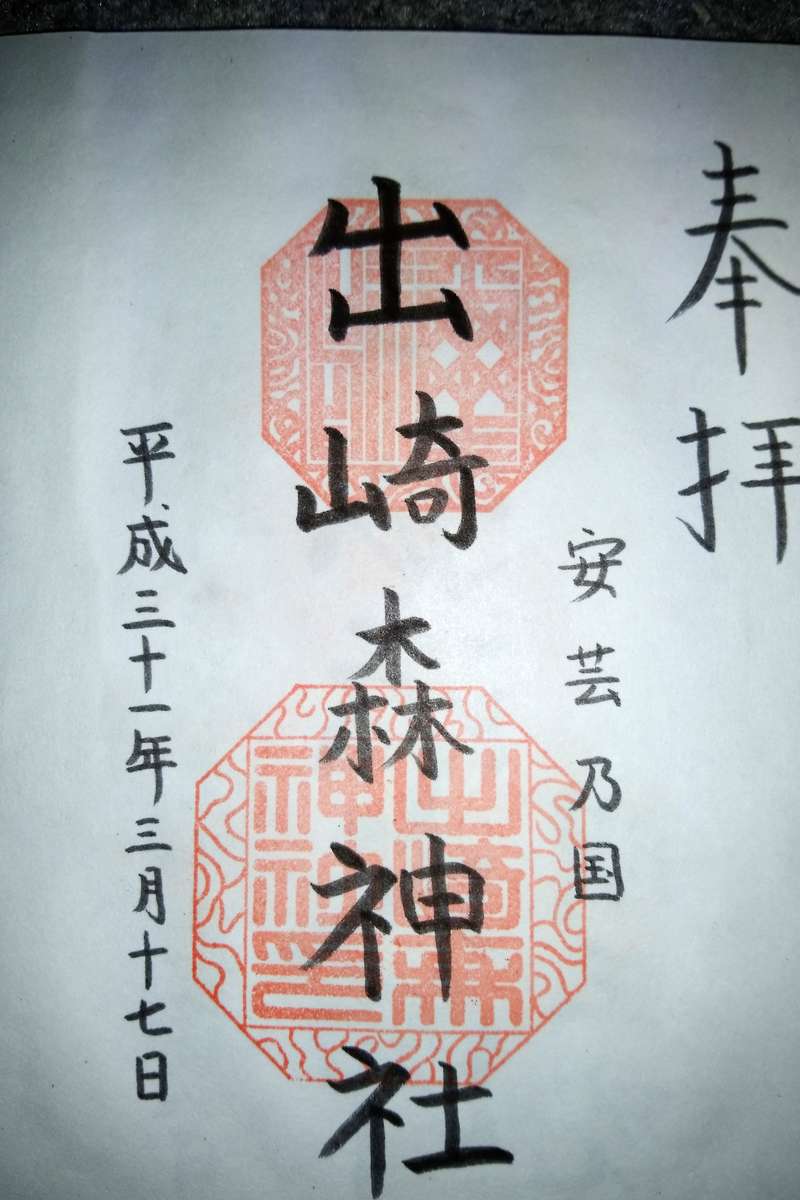 奉拝
安芸乃国
出崎森神社
平成三十一年三月十七日